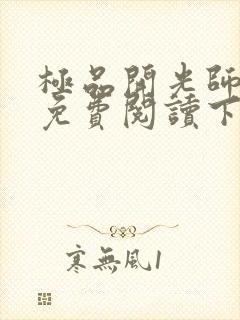 極品開光師
免費閱讀下
寒無風1